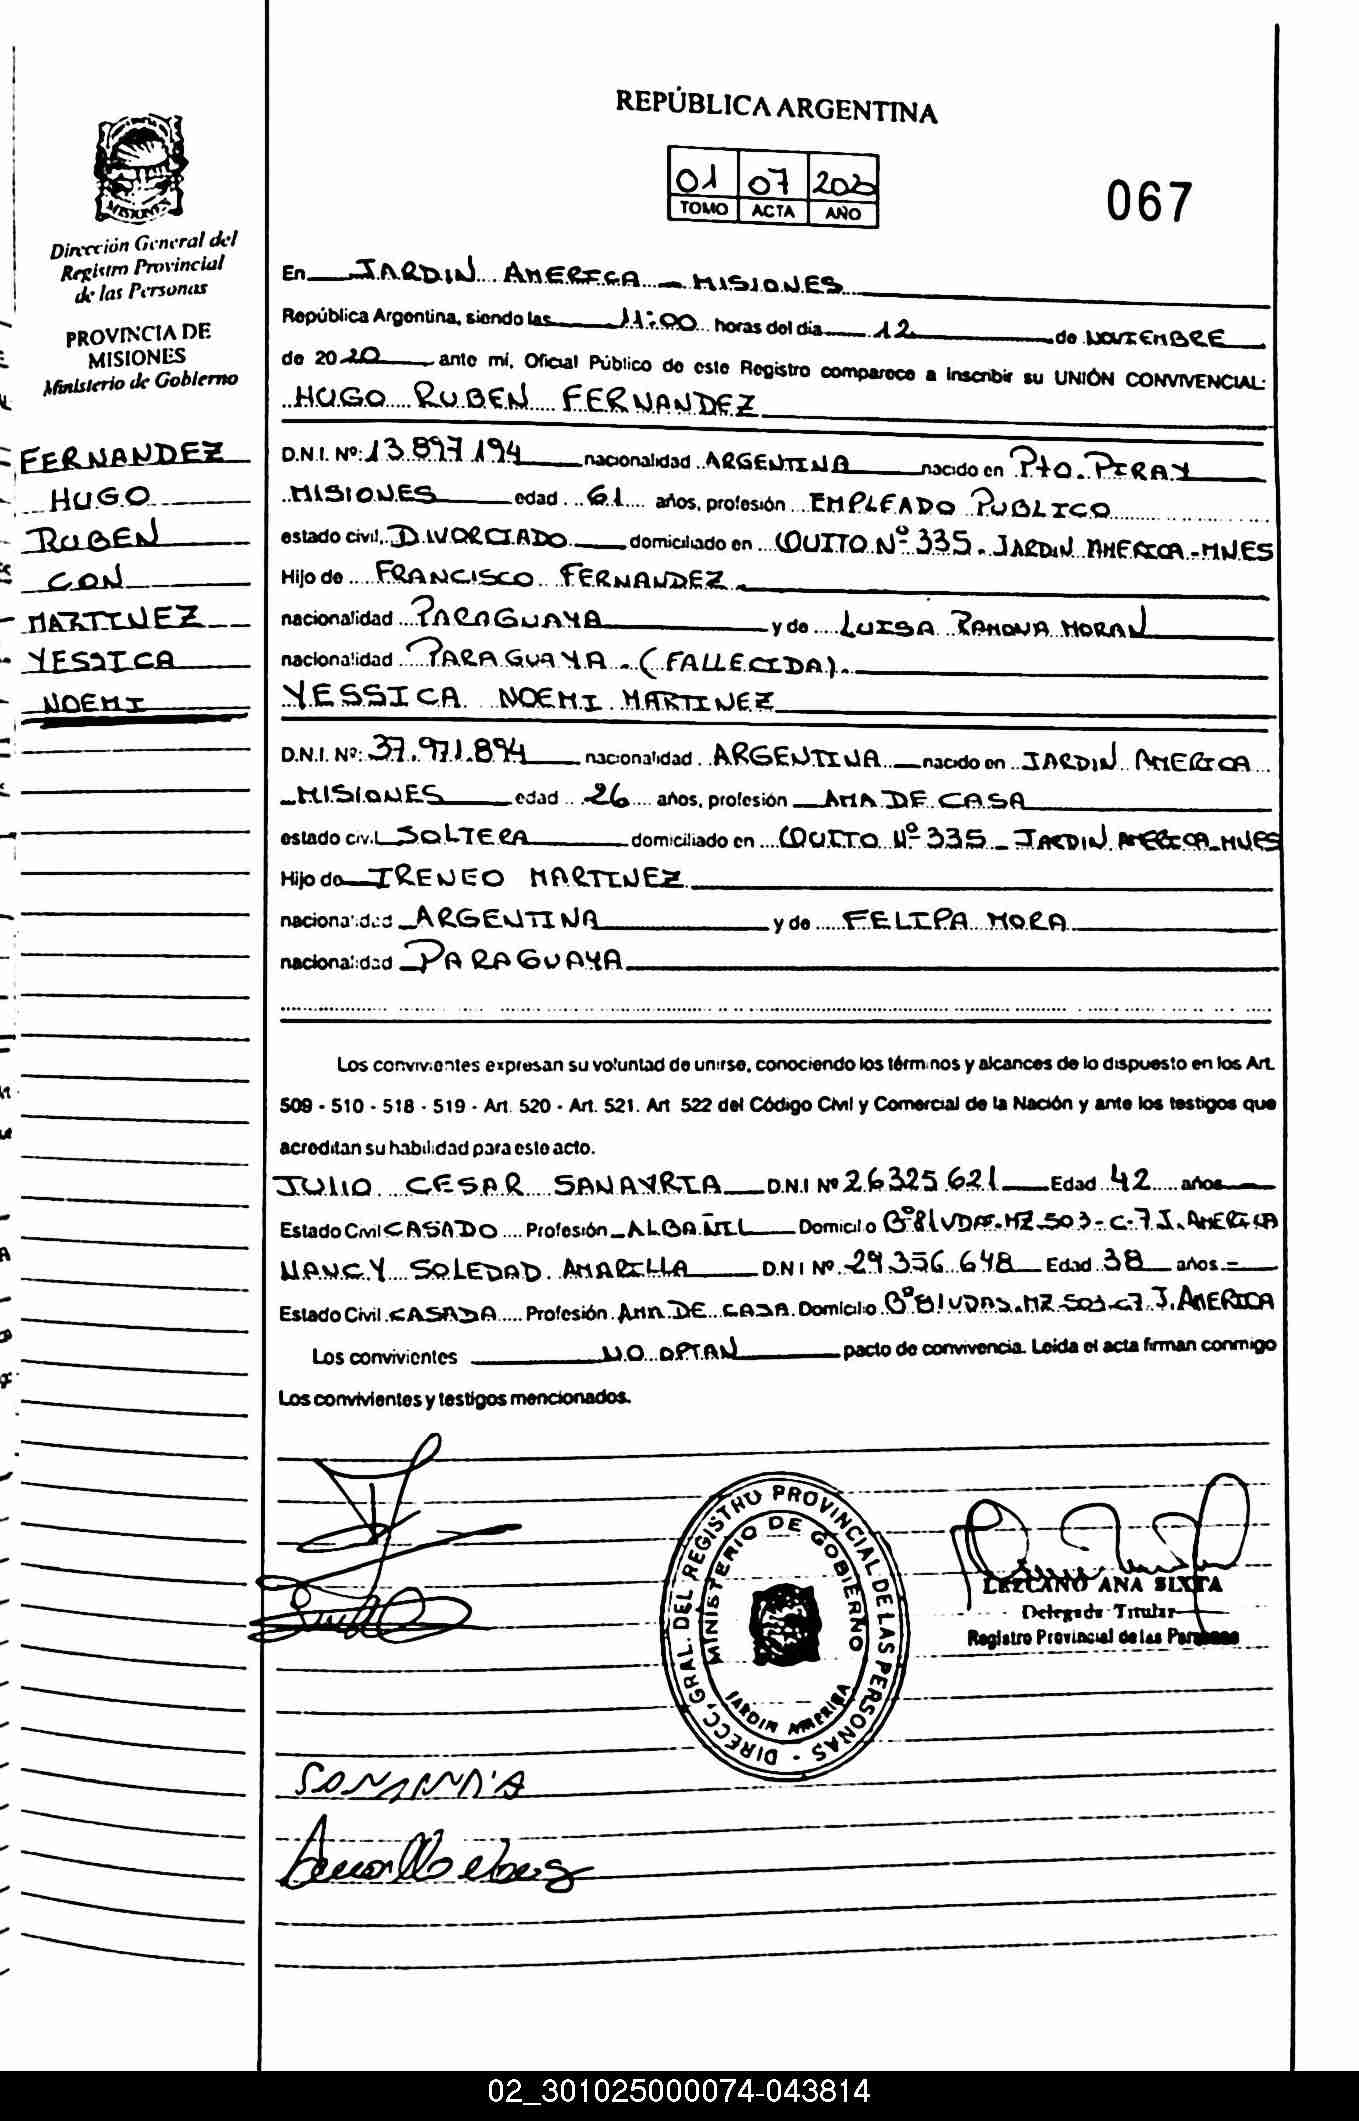 REPÚBLICA ARGENTINA
01 07 2020
TOMO ACTA AÑO
067
Dirección General del
Registro Provincial
de las Personas
PROVINCIA DE
MISIONES
Ministerio de Gobierno
FERNANDEZ
HUGO
RUBEN
CON
MARTINEZ
YESSICA
NOEMI
En JARDIN AMERICA - MISIONES
República Argentina, siendo las 11:00 horas del día 12 de NOVIEMBRE
de 2020 ante mí, Oficial Público de este Registro comparece a inscribir su UNIÓN CONVIVENCIAL:
HUGO RUBEN FERNANDEZ
D.N.I. Nº: 13.897.194 nacionalidad ARGENTINA nacido en Pto. PIRAY
MISIONES edad 61 años, profesión EMPLEADO PUBLICO
estado civil, DIVORCIADO domiciliado en QUITO Nº 335 - JARDIN AMERICA - MNES
Hijo de FRANCISCO FERNANDEZ
nacionalidad PARAGUAYA y de LUISA RAMONA MORAN
nacionalidad PARAGUAYA - (FALLECIDA).
YESSICA NOEMI MARTINEZ
D.N.I. Nº: 37.971.894 nacionalidad ARGENTINA nacido en JARDIN AMERICA
MISIONES edad 26 años, profesión AMA DE CASA
estado civil SOLTERA domiciliado en QUITO Nº 335 - JARDIN AMERICA - MNES
Hijo de IRENEO MARTINEZ
nacionalidad ARGENTINA y de FELIPA MORA
nacionalidad PARAGUAYA
Los convivientes expresan su voluntad de unirse, conociendo los términos y alcances de lo dispuesto en los Art.
509 - 510 - 518 - 519 - Art. 520 - Art. 521. Art 522 del Código Civil y Comercial de la Nación y ante los testigos que
acreditan su habilidad para este acto.
JULIO CESAR SANAVRIA D.N.I Nº 26325.621 Edad 42 años
Estado Civil CASADO Profesión ALBAÑIL Domicilio Bº 81 VDAS - MZ 503 - C-7 J. AMERICA
NANCY SOLEDAD AMARILLA D.N I Nº 29.356.648 Edad 38 años
Estado Civil CASADA Profesión AMA DE CASA Domicilio Bº 81 VDAS. MZ 503 - C7 J. AMERICA
Los convivientes NO OPTAN pacto de convivencia. Leída el acta firman conmigo
Los convivientes y testigos mencionados.
DIRECC. GRAL. DEL REGISTRO PROVINCIAL DE LAS PERSONAS -
MINISTERIO DE GOBIERNO
JARDIN AMERICA
LEZCANO ANA SIXTA
Delegada Titular
Registro Provincial de las Personas
02_301025000074-043814